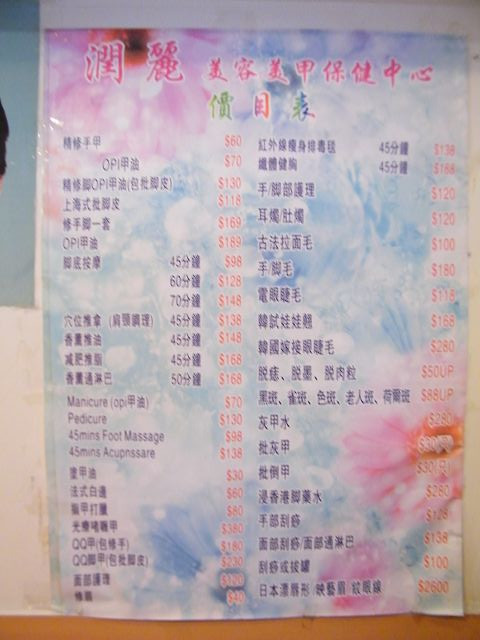 潤麗 美容美甲保健中心
價目表
精修手甲 $60
OPI甲油 $70
精修脚OPI甲油(包批脚皮) $130
上海式批脚皮 $118
修手脚一套 $169
OPI甲油 $189
脚底按摩 45分鐘 $98
60分鐘 $128
70分鐘 $148
穴位推拿 (肩頸調理) 45分鐘 $138
香薰推油 45分鐘 $148
減肥推脂 45分鐘 $168
香薰通淋巴 50分鐘 $168
Manicure (opi甲油) $70
Pedicure $130
45mins Foot Massage $98
45mins Acupnssare $138
塗甲油 $30
法式白邊 $60
指甲打臘 $80
光療啫喱甲 $380
QQ甲(包修手) $180
QQ脚甲(包批脚皮) $230
面部護理 $120
修眉 $40
紅外線瘦身排毒毯 45分鐘 $138
纖體健胸 45分鐘 $168
手/脚部護理 $120
耳燭/肚燭 $120
古法拉面毛 $100
手/脚毛 $180
電眼睫毛 $118
韓試娃娃翹 $168
韓國嫁接眼睫毛 $280
脱痣、脱墨、脱肉粒 $50UP
黑斑、雀斑、色斑、老人斑、荷爾斑 $88UP
灰甲水 $280
批灰甲 $30(只)
批倒甲 $30(只)
浸香港脚藥水 $280
手部刮痧 $128
面部刮痧/面部通淋巴 $138
刮痧或拔罐 $100
日本漂唇形/映藝眉/紋眼線 $2600